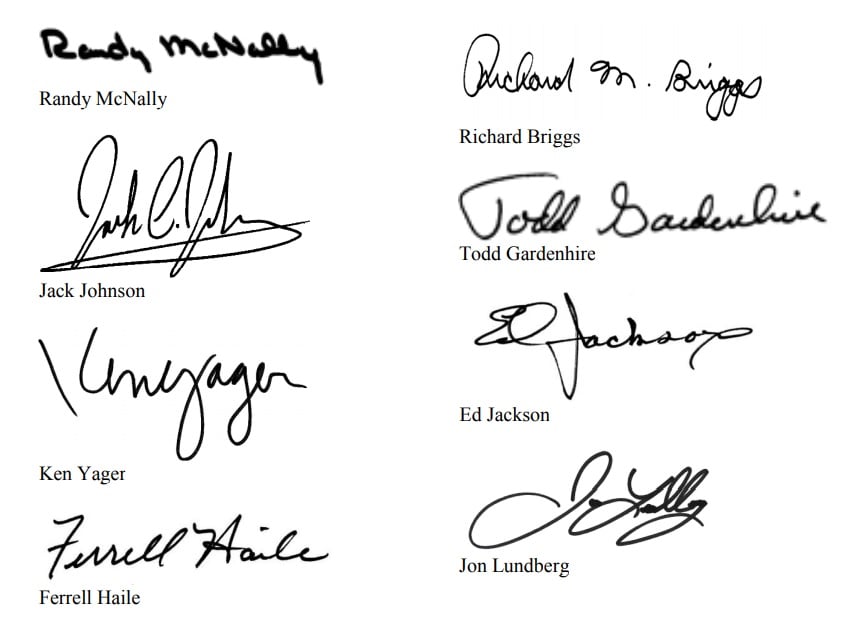 Randy McNally
Randy McNally
Jack C. Joh
Jack Johnson
Ken Yager
Ken Yager
Ferrell Haile
Ferrell Haile
Richard M. Briggs
Richard Briggs
Todd Gardenhire
Todd Gardenhire
Ed Jackson
Ed Jackson
Jon Lundberg